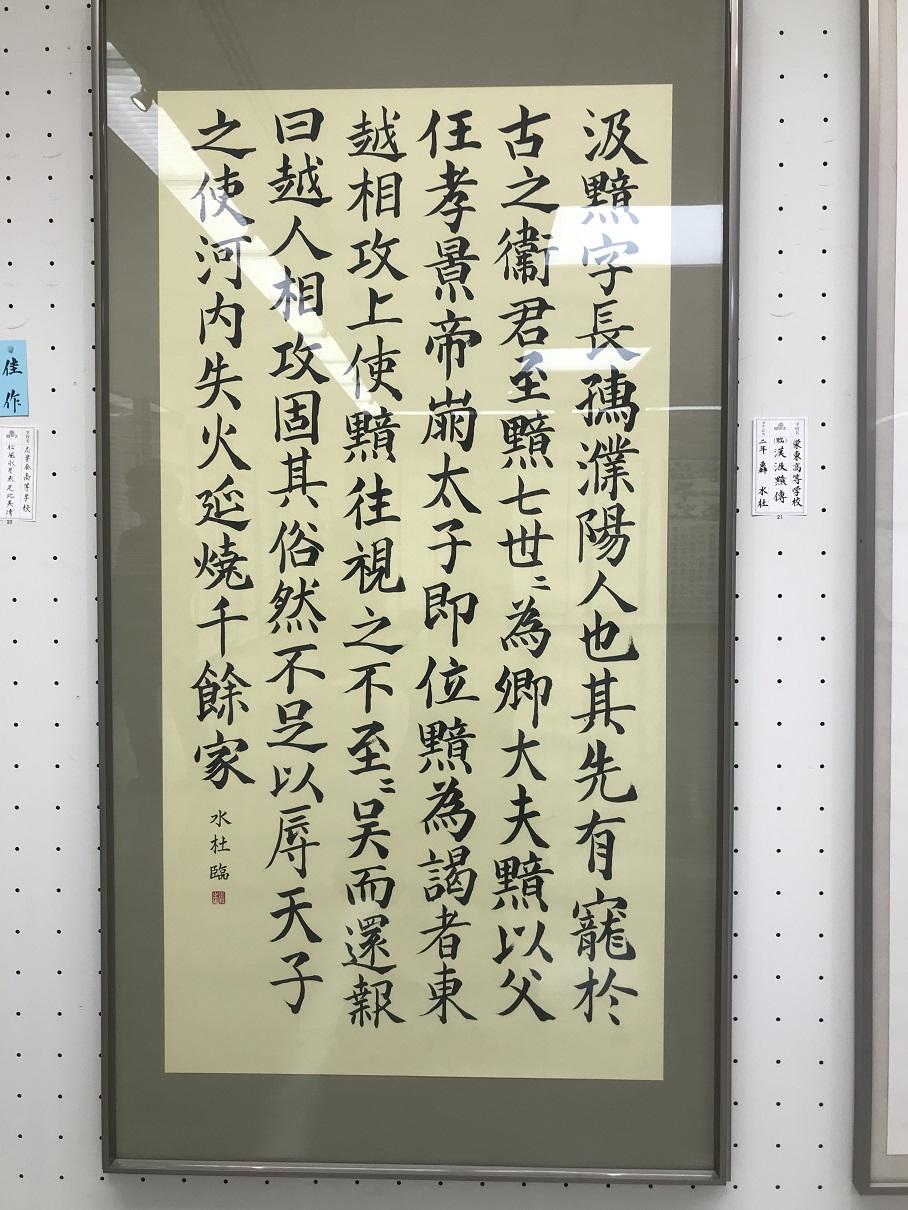 汲黯字長孺濮陽人也其先有寵於
古之衞君至黯七世〻為卿大夫黯以父
任孝景帝崩太子即位黯為謁者東
越相攻上使黯往視之不至〻吳而還報
曰越人相攻固其俗然不足以辱天子
之使河内失火延燒千餘家
水杜臨
栄東高等学校
(臨)漢汲黯傳
二年 轟 水杜
21
佳作
高等学校
22